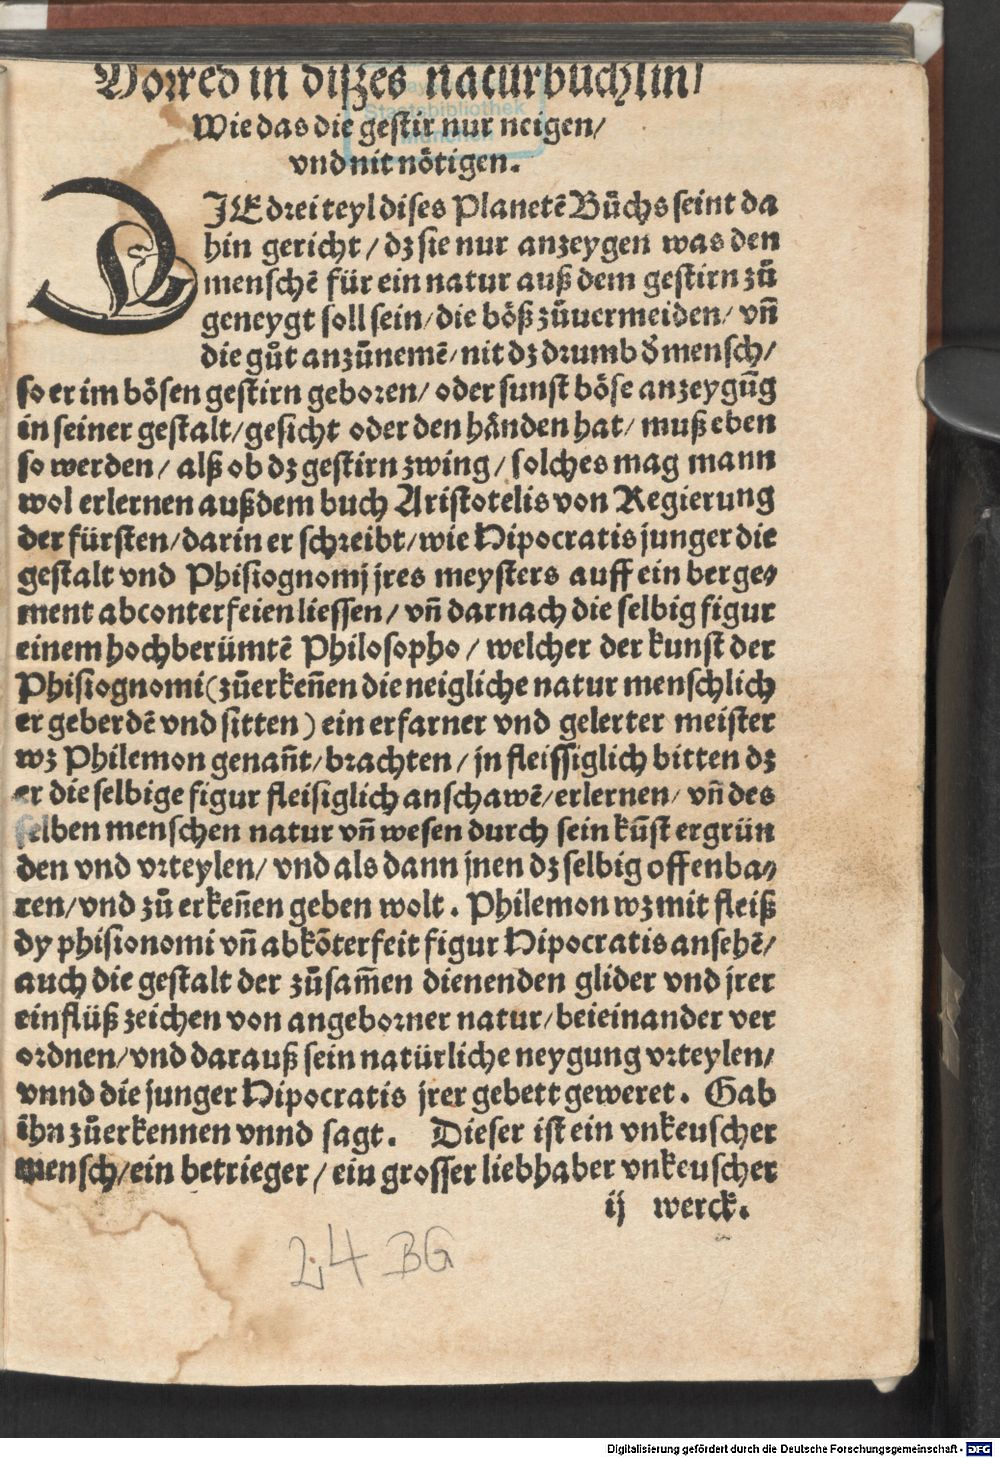 Vorred in diszes naturbüchlin/
Wie das die gestir nur neigen/
vnd nit nötigen.
DJE drei teyl dises Planetẽ Bůchs seint da
hin gericht / dz sie nur anzeygen was den
menschẽ für ein natur auß dem gestirn zů
geneygt soll sein/die böß zůuermeiden/ vñ
die gůt anzůnemẽ/nit dz drumb d̉ mensch/
so er im bösen gestirn geboren/ oder sunst böse anzeygũg
in seiner gestalt/gesicht oder den händen hat/ muß eben
so werden/ alß ob dz gestirn zwing/ solches mag mann
wol erlernen auß dem buch Aristotelis von Regierung
der fürsten/darin er schreibt/wie Hipocratis junger die
gestalt vnd Phisiognomj jres meysters auff ein berge⸗
ment abconterfeien liessen/ vñ darnach die selbig figur
einem hochberümtẽ Philosopho / welcher der kunst der
Phisiognomi(zůerkeñen die neigliche natur menschlich
er geberdẽ vnd sitten) ein erfarner vnd gelerter meister
wz Philemon genañt/brachten/ jn fleissiglich bitten dz
er die selbige figur fleisiglich anschawẽ/erlernen/ vñ des
selben menschen natur vñ wesen durch sein kũst ergrün
den vnd vrteylen/ vnd als dann jnen dz selbig offenba⸗
ren/vnd zů erkeñen geben wolt. Philemon wz mit fleiß
dy phisionomi vñ abkõterfeit figur Hipocratis ansehẽ/
auch die gestalt der zůsam̃en dienenden glider vnd jrer
einflüß zeichen von angeborner natur/beieinander ver
ordnen/vnd darauß sein natürliche neygung vrteylen/
vnnd die junger Hipocratis jrer gebett geweret. Gab
ihn zůerkennen vnnd sagt. Dieser ist ein vnkeuscher
mensch/ein betrieger/ ein grosser liebhaber vnkeuscher
ij werck.
24 BG
Staatsbibliothek
Digitalisierung gefördert durch die Deutsche Forschungsgemeinschaft - DFG